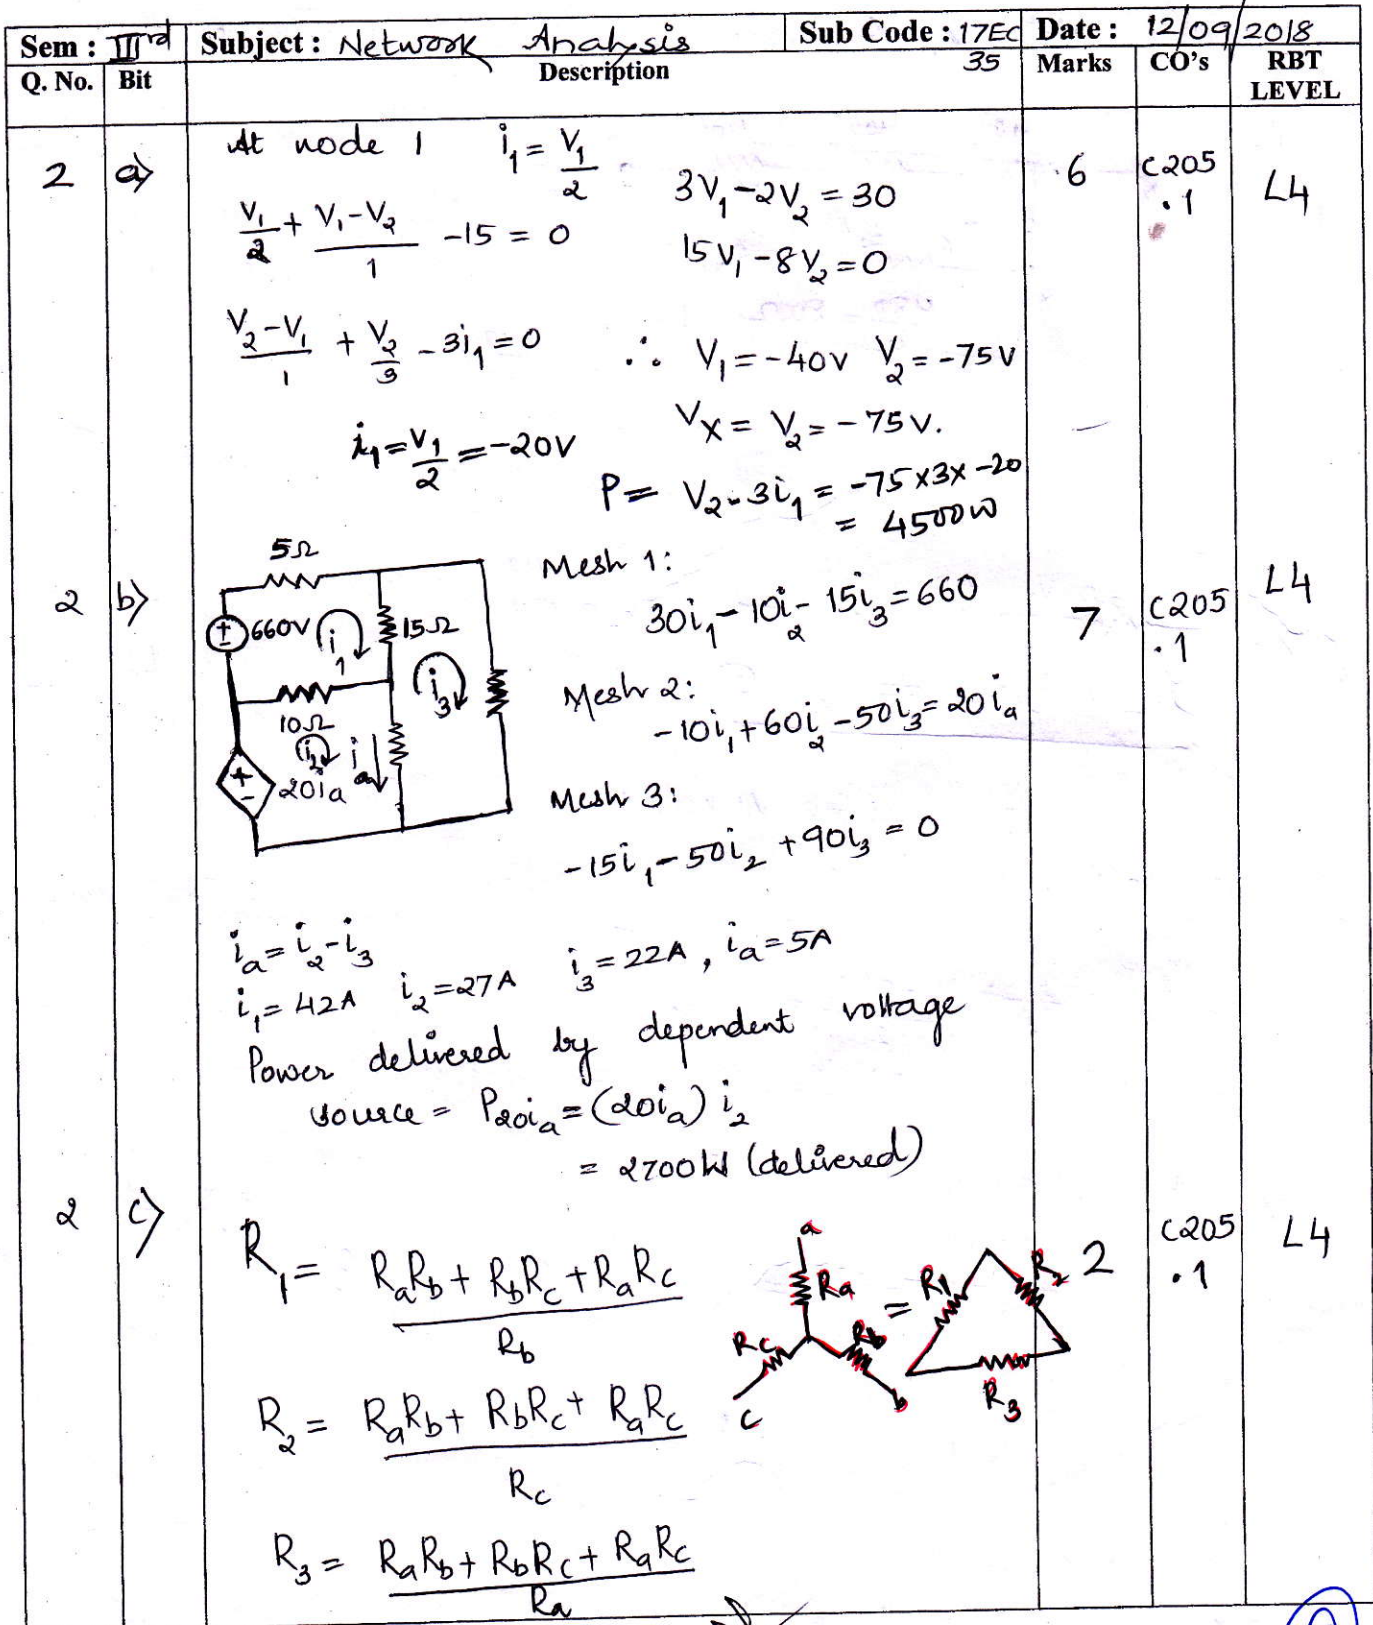 Sem : IIIrd Subject : Network Analysis Sub Code : 17EC35 Date : 12/09/2018
Q. No. Bit Description Marks CO's RBT LEVEL
2 a) At node 1 i₁ = V₁/2 6 C205.1 L4
V₁/2 + (V₁-V₂)/1 - 15 = 0
3V₁-2V₂ = 30
15V₁-8V₂=0
(V₂-V₁)/1 + V₂/3 - 3i₁ = 0
∴ V₁=-40V V₂=-75V
Vx = V₂ = -75V.
i₁=V₁/2 = -20V
P = V₂ - 3i₁ = -75x3x-20
= 4500W
2 b) 7 C205.1 L4
5Ω
660V
i₁
15Ω
i₃
10Ω
i₂
iₐ
20iₐ
Mesh 1:
30i₁-10i₂-15i₃=660
Mesh 2:
-10i₁+60i₂-50i₃=20iₐ
Mesh 3:
-15i₁-50i₂+90i₃=0
iₐ=i₂-i₃
i₁=42A i₂=27A i₃=22A, iₐ=5A
Power delivered by dependent voltage
source = P20iₐ=(20iₐ) i₂
= 2700W (delivered)
2 c) 2 C205.1 L4
R₁ = (RaRb + RbRc + RaRc)/Rb
R₂ = (RaRb + RbRc + RaRc)/Rc
R₃ = (RaRb + RbRc + RaRc)/Ra
a
Ra
Rc
Rb
c
b
=
R1
R2
R3